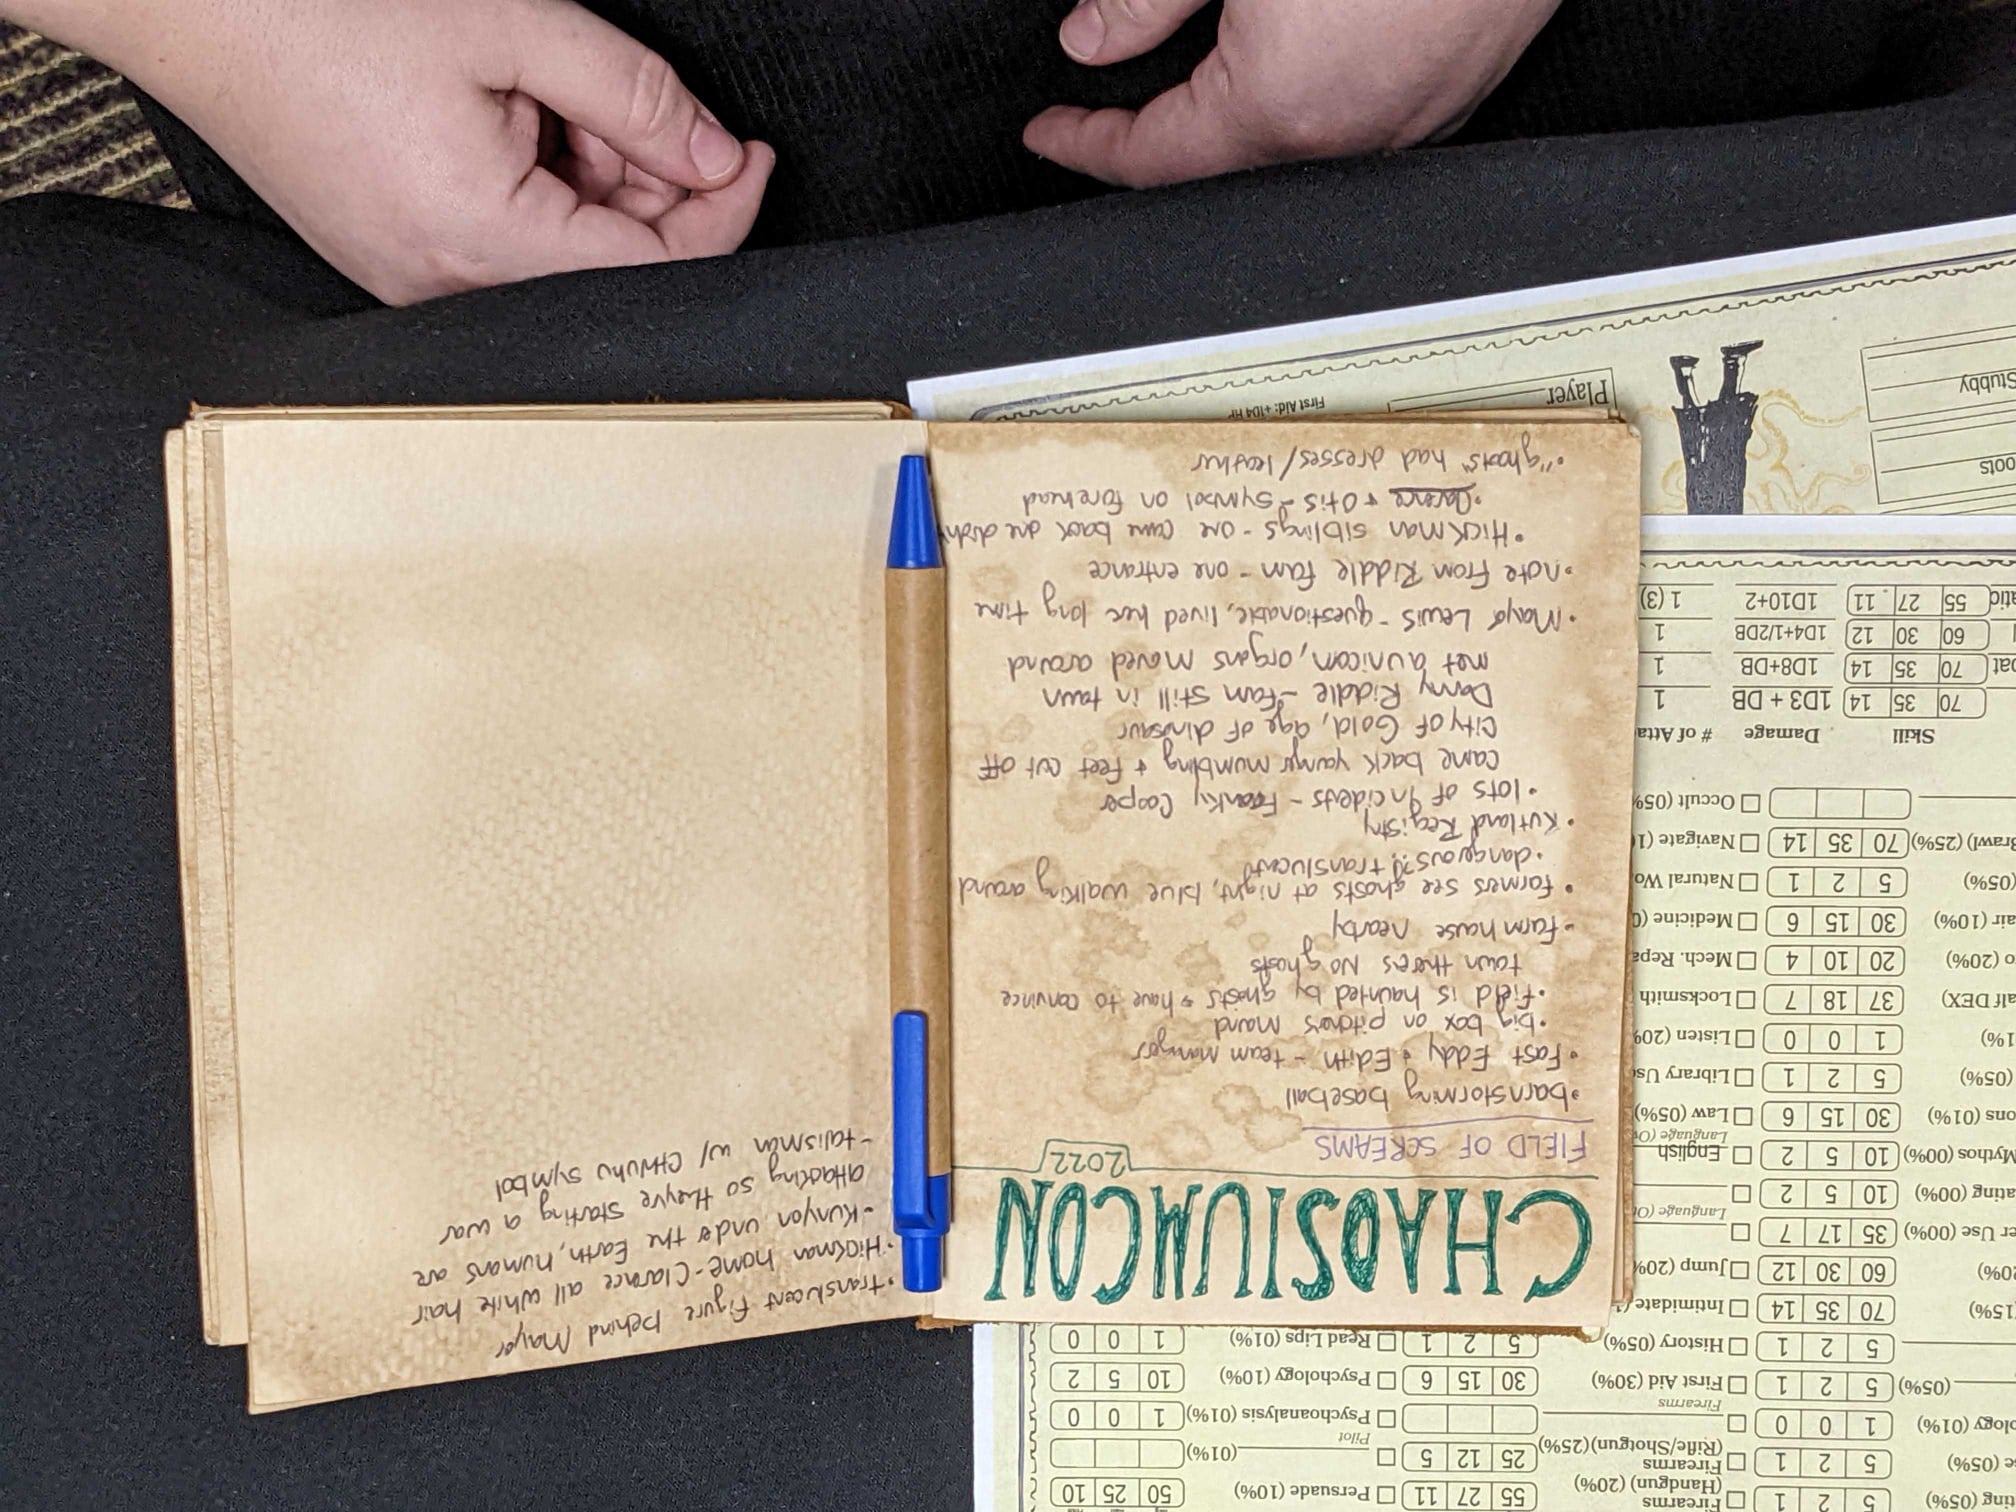 CHAOSIUMCON
2022
FIELD OF SCREAMS
• barnstorming baseball
• Fast Eddy + Edith - team manager
• big box on pitchers mound
• field is haunted by ghosts → have to convince
town theres no ghosts
- farm house nearby
• farmers see ghosts at night, blue walking around
• dangerous?! translucent
• Kutland Registry
• lots of incidents - Franky Cooper
came back mumbling + feet cut off
City of Gold, age of dinosaur
Danny Riddle - fam still in town
met a unicorn, organs moved around
• Mayor Lewis - questionable, lived here long time
• note from Riddle fam - one entrance
• Hickman siblings - one came back one didn't
• Clarence + Otis - symbol on forehead
• "ghosts" had dresses/leather
• translucent figure behind Mayor
• Hickman home - Clarence all white hair
- Kunyon under the Earth, humans are
attacking so theyre starting a war
- talisman w/ Cthulhu symbol
5 2 1
Firearms
(Handgun) (20%) 55 27 11
Persuade (10%) 50 25 10
(05%) 5 2 1
Firearms
(Rifle/Shotgun) (25%) 25 12 5
Pilot
(01%)
(01%) 1 0 0
Firearms
Psychoanalysis (01%) 1 0 0
(05%) 5 2 1
First Aid (30%) 30 15 6
Psychology (10%) 10 5 2
5 2 1
History (05%) 5 2 1
Read Lips (01%) 1 0 0
70 35 14
Intimidate
60 30 12
Jump (20%
(00%) 35 17 7
Language (O
(00%) 10 5 2
Mythos (00%) 10 5 2
English
Language (Ow
(01%) 30 15 6
Law (05%)
(05%) 5 2 1
Library Us
1%) 1 0 0
Listen (20%
alf DEX) 37 18 7
Locksmith
(20%) 20 10 4
Mech. Repa
air (10%) 30 15 6
Medicine (0
(05%) 5 2 1
Natural Wo
Brawl) (25%) 70 35 14
Navigate (1
Occult (05%
Skill Damage # of Atta
70 35 14 1D3 + DB 1
70 35 14 1D8+DB 1
60 30 12 1D4+1/2DB 1
55 27 11 1D10+2 1 (3)
oots
Stubby
Player
First Aid: +1D4 HP